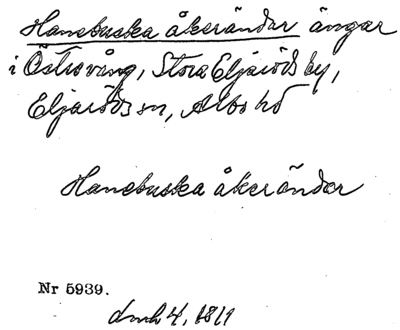 Hanebuska åkerändar ängar
i Östrovång, Stora Eljaröds by,
Eljaröds sn, Albo hd
Hanebuska åkerändar
Nr 5939.
4, 1811